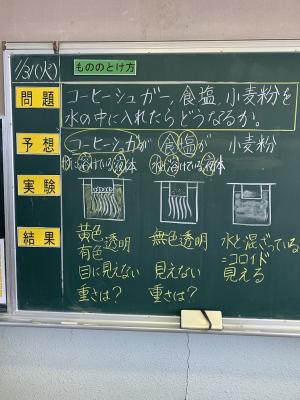 1/31(火) もののとけ方
問題 コーヒーシュガー,食塩,小麦粉を
水の中に入れたらどうなるか。
予想 コーヒーシュガーが 食塩が 小麦粉
水に溶けている液体 水に溶けている液体
実験
結果 黄色 透明 無色透明 水と混ざっている
有色 =コロイド
目に見えない 見えない 見える
重さは? 重さは?